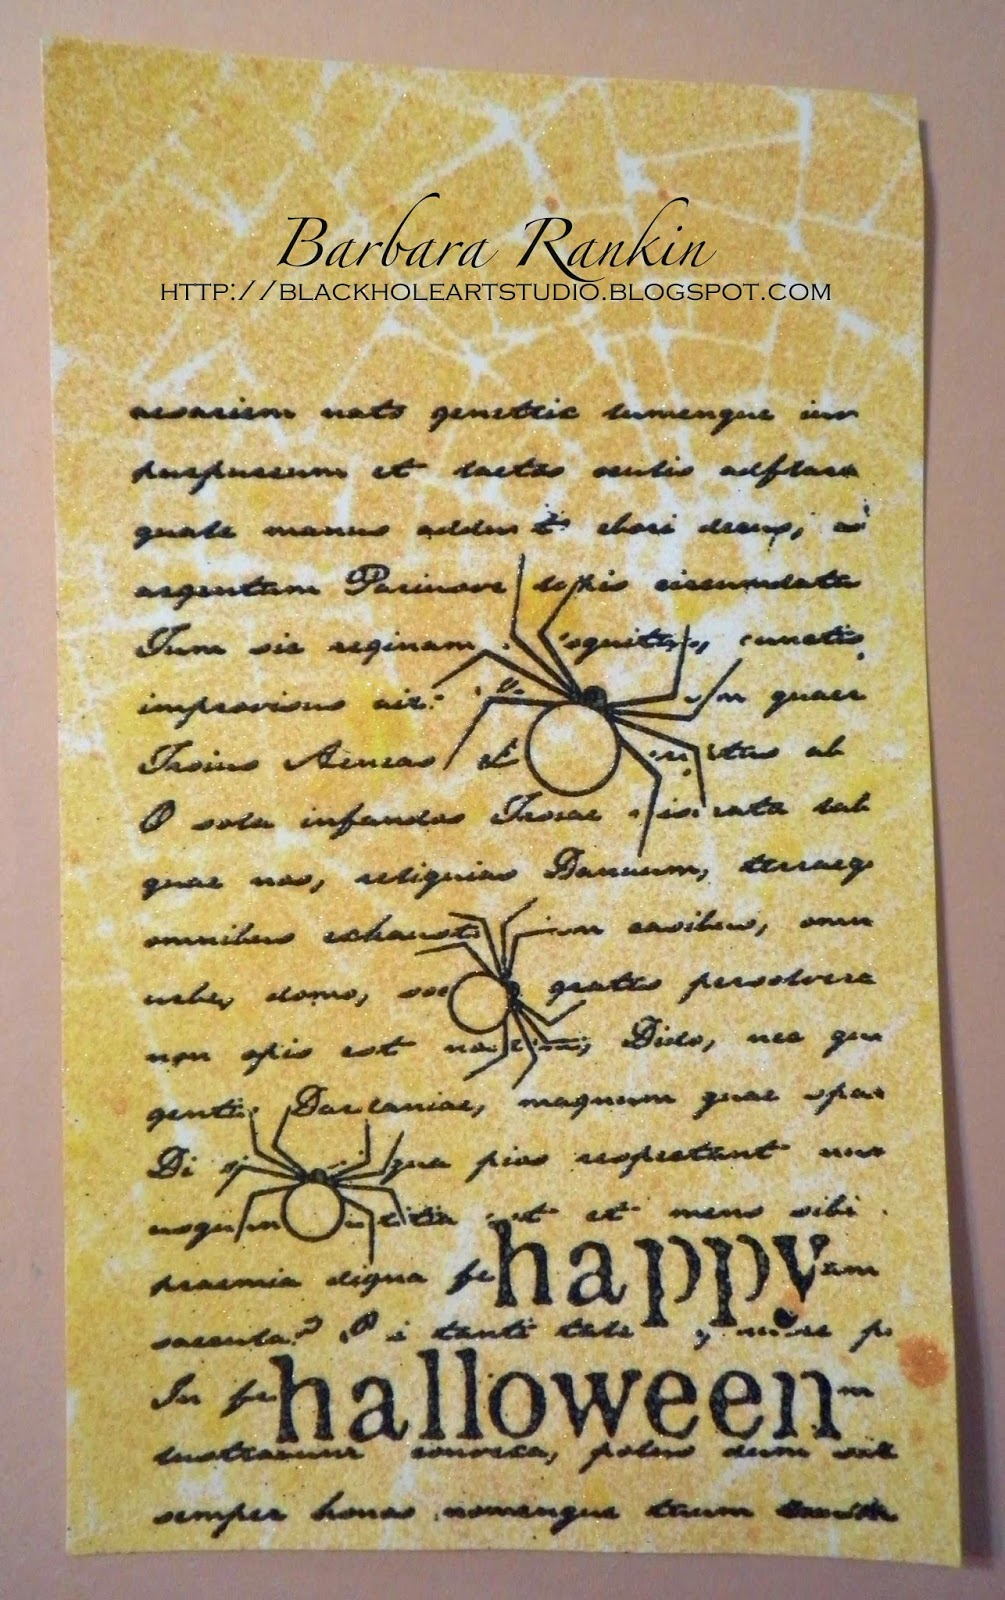 Barbara Rankin
HTTP://BLACKHOLEARTSTUDIO.BLOGSPOT.COM
aesariem nato genetrix lumenque iuv
purpureum et laetos oculis adflara
quale manus addunt ebori decus, a
argentum Pariusve lapis circumdata
Tum sic reginam oquitur, cunctis
improvisus ait: quaer
Troius Aeneas ab
O sola infandos Troiae miserata lab
quae nos, reliquias Danaum, terraeq
omnibus exhaust casibus, omn
urbe, domo, soc grates persolvere
non opis est nostrae, Dido, nec qu
gentis Dardaniae, magnum quae spar
Di qua pios respectant num
usquam iustitia est et mens sibi
praemia digna fe
happy
saecula? tanti tale
In
halloween
lustrabunt convexa, polus dum
semper honos nomenque tuum